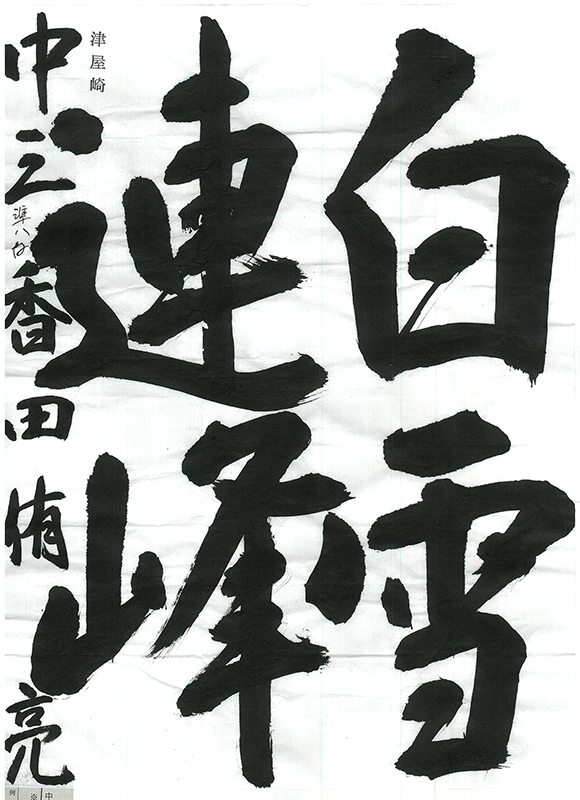 白雪
連峰
津屋崎
中三 準八段 香田侑亮
中
※
例